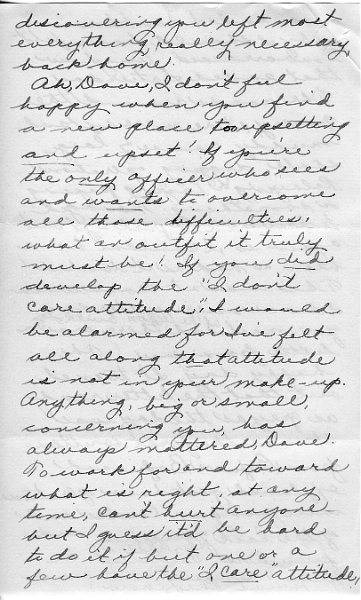 discovering you left most
everything really necessary,
back home.
Ah, Dave, I don't feel
happy when you find
a new place so upsetting
and upset! If you're
the only officer who sees
and wants to overcome
all those difficulties,
what an outfit it truly
must be! If you did
develop the "I don't
care attitude", I would
be alarmed for I've felt
all along that attitude
is not in your make-up.
Anything, big or small,
concerning you, has
always mattered, Dave.
To work for and toward
what is right, at any
time, can't hurt anyone
but I guess it'd be hard
to do it if but one or a
few have the "I care" attitude,